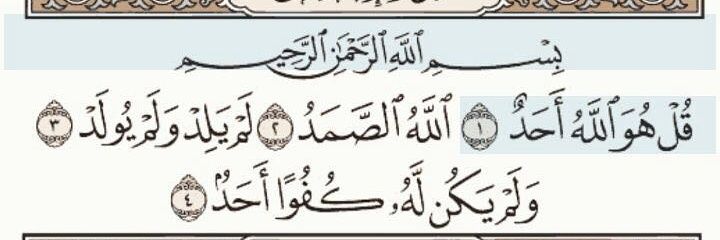 بِسْمِ ٱللَّهِ ٱلرَّحْمَٰنِ ٱلرَّحِيمِ
قُلْ هُوَ ٱللَّهُ أَحَدٌ ١ ٱللَّهُ ٱلصَّمَدُ ٢ لَمْ يَلِدْ وَلَمْ يُولَدْ ٣
وَلَمْ يَكُن لَّهُۥ كُفُوًا أَحَدٌۢ ٤